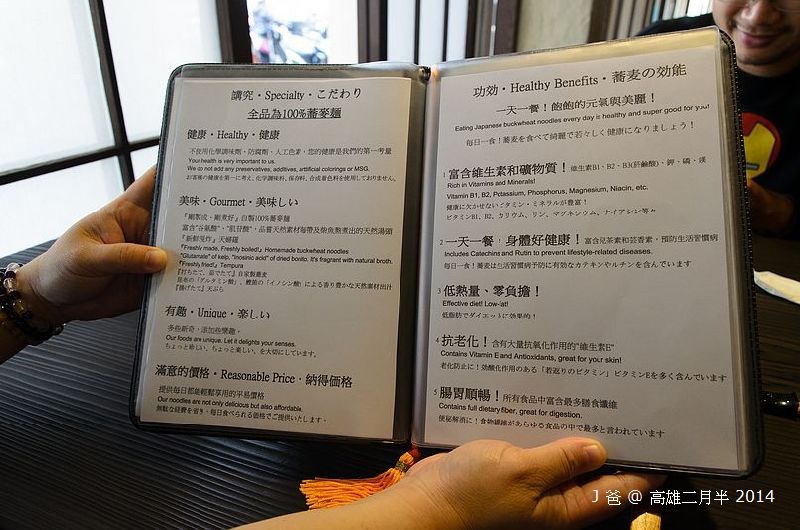 講究・Specialty・こだわり
全品為100%蕎麥麵
健康・Healthy・健康
不使用化學調味劑、防腐劑、人工色素,您的健康是我們的第一考量
Your health is very important to us.
We do not add any preservatives, additives, artificial colorings or MSG.
お客様の健康を第一に考え、化学調味料、保存料、合成着色料を使用しておりません。
美味・Gourmet・美味しい
『剛製成、剛煮好』自製100%蕎麥麵
富含"谷氨酸"、"肌苷酸",品嘗天然素材海帶及柴魚熬煮出的天然湯頭
『新鮮現炸』天婦羅
『Freshly made, Freshly boiled』 Homemade buckwheat noodles
"Glutamate" of kelp, "Inosinic acid" of dried bonito. It's fragrant with natural broth.
『Freshly fried』 Tempura
『打ちたて、茹でたて』自家製蕎麦
昆布の「グルタミン酸」、鰹節の「イノシン酸」による香り豊かな天然素材出汁
『揚げたて』天ぷら
有趣・Unique・楽しい
多些新奇,添加些樂趣。
Our foods are unique. Let it delights your senses.
ちょっと珍しい、ちょっと楽しい、を大切にしています。
滿意的價格・Reasonable Price・納得価格
提供每日都能輕鬆享用的平易價格
Our noodles are not only delicious but also affordable.
無駄な経費を省き、毎日食べられる価格でご提供いたします。
功効・Healthy Benefits・蕎麦の効能
一天一餐!飽飽的元氣與美麗!
Eating Japanese buckwheat noodles every day is healthy and super good for you!
毎日一食!蕎麦を食べて綺麗で若々しく健康になりましょう!
1 富含維生素和礦物質! 維生素B1、B2、B3(菸鹼酸)、鉀、磷、鎂
Rich in Vitamins and Minerals!
Vitamin B1, B2, Potassium, Phosphorus, Magnesium, Niacin, etc.
健康に欠かせないビタミン・ミネラルが豊富!
ビタミンB1、B2、カリウム、リン、マグネシウム、ナイアシン等々
2 一天一餐,身體好健康! 富含兒茶素和芸香素,預防生活習慣病
Includes Catechins and Rutin to prevent lifestyle-related diseases.
毎日一食!蕎麦は生活習慣病予防に有効なカテキンやルチンを含んでいます
3 低熱量、零負擔!
Effective diet! Low-fat!
低脂肪でダイエットに効果的!
4 抗老化! 含有大量抗氧化作用的"維生素E"
Contains Vitamin E and Antioxidants, great for your skin!
老化防止に!抗酸化作用のある「若返りのビタミン」ビタミンEを多く含んでいます
5 腸胃順暢! 所有食品中富含最多膳食纖維
Contains full dietary fiber, great for digestion.
便秘解消に!食物繊維があらゆる食品の中で最も多いと言われています
J 爸 @ 高雄二月半 2014